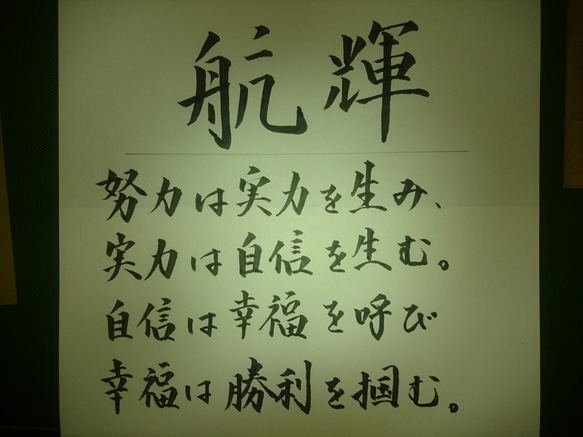 航輝
努力は実力を生み、
実力は自信を生む。
自信は幸福を呼び
幸福は勝利を掴む。